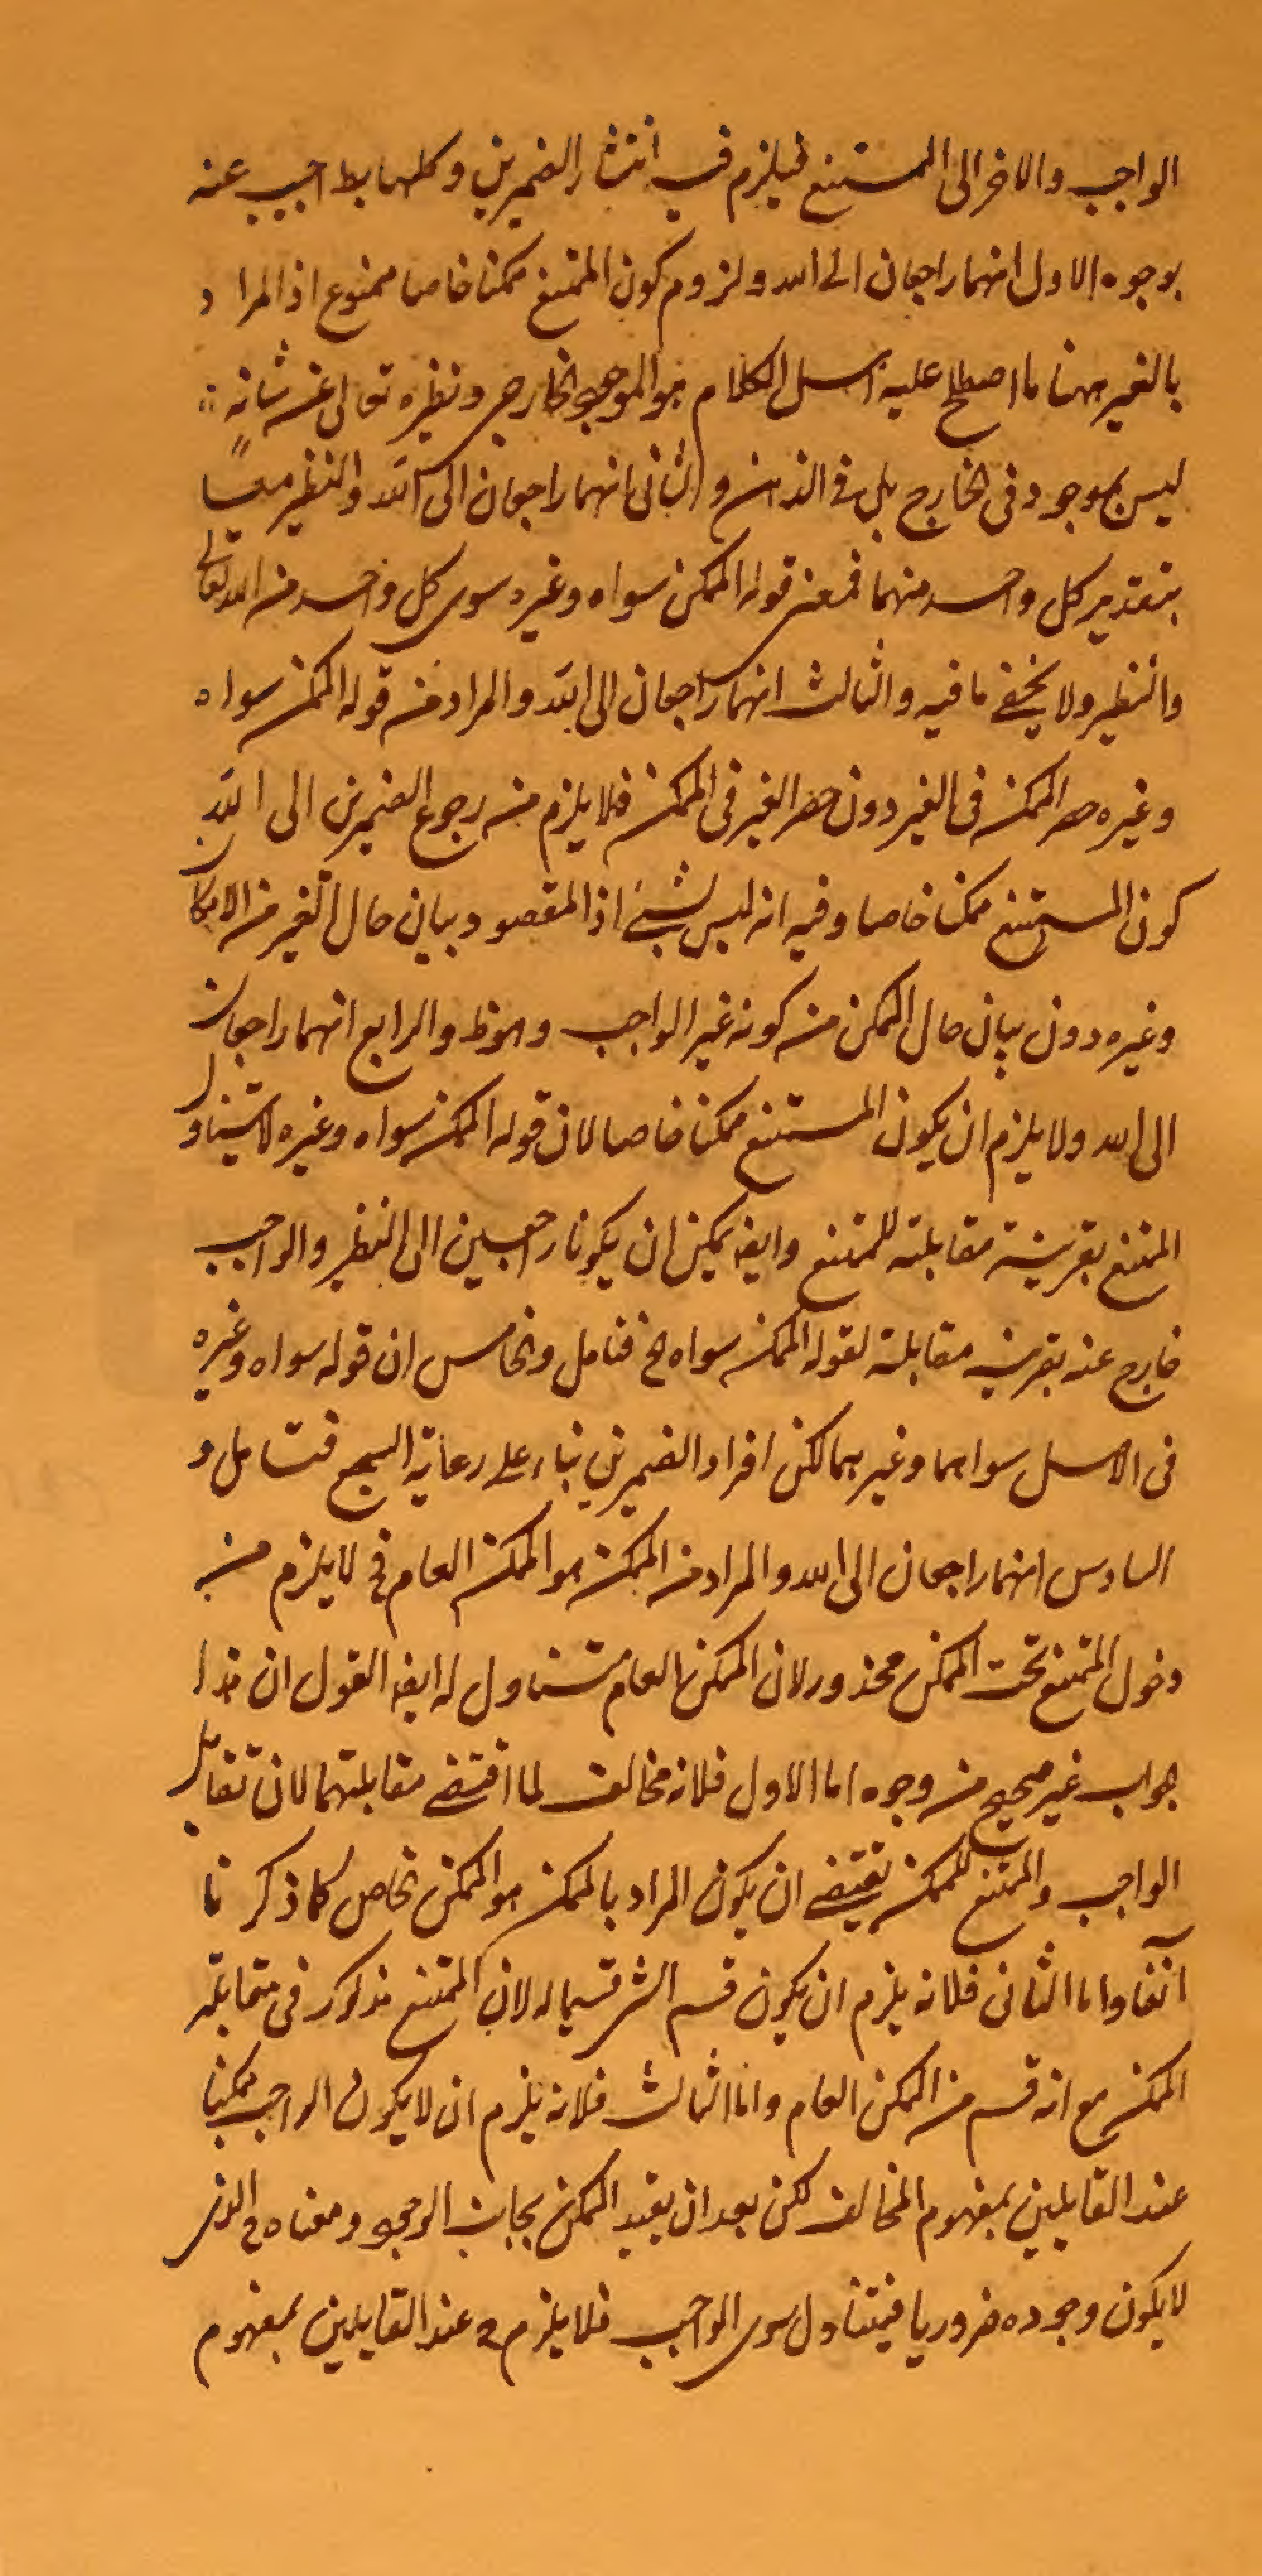 الواجب والاخر الى الممتنع فيلزم فيه انتشار الضميرين وكلها بط اجيب عنه
بوجوه الاول انهما راجعان الى الله ولزوم كون الممتنع ممكنا خاصا ممنوع اذ المراد
بالغير ههنا ما اصطلح عليه اهل الكلام هو الموجود الخارجى ونظيره تعالى عز شانه
ليس بموجود فى الخارج بل فى الذهن والثانى انهما راجعان الى الله والنظير معا
بتقدير كل واحد منهما فمعنى قوله الممكن سواه وغيره سوى كل واحد من الله تعالى
والنظير ولا يخفى ما فيه والثالث انهما راجعان الى الله والمراد من قوله الممكن سواه
وغيره حصر الممكن فى الغير دون حصر الغير فى الممكن فلا يلزم من رجوع الضميرين الى الله
كون الممتنع ممكنا خاصا وفيه انه ليس بشئ اذ المقصود بيان حال الغير من الامكا
وغيره دون بيان حال الممكن من كونه غير الواجب وهو ظ والرابع انهما راجعان
الى الله ولا يلزم ان يكون الممتنع ممكنا خاصا لان قوله الممكن سواه وغيره لا يتناول
الممتنع بقرينة مقابلته للممتنع وايضا يمكن ان يكونا راجعين الى النظير والواجب
خارج عنه بقرينة مقابلة لقوله الممكن سواه الخ فتامل والخامس ان قوله سواه وغيره
فى الاصل سواهما وغيرهما لكن افراد الضميرين بناء على رعاية السجع فتامل و
السادس انهما راجعان الى الله والمراد من الممكن هو الممكن العام فح لا يلزم من
دخول الممتنع تحت الممكن محذور لان الممكن العام متناول له ايضا القول ان هذا
جواب غير صحيح من وجوه اما الاول فلانه مخالف لما اقتضى مقابلتهما لان تقابل
الواجب والممتنع للممكن يقتضى ان يكون المراد بالممكن هو الممكن الخاص كما ذكرنا
آنفا واما الثانى فلانه يلزم ان يكون قسم الشئ قسيما له لان الممتنع مذكور فى مقابلة
الممكن مع انه قسم من الممكن العام واما الثالث فلانه يلزم ان لا يكون الواجب ممكنا
عند القايلين بمفهوم المخالف لكن بعد ان يقيد الممكن بجانب الوجود ومعناه ح الذى
لا يكون وجوده ضروريا فيتناول سوى الواجب فلا يلزم ح عند القايلين بمفهوم